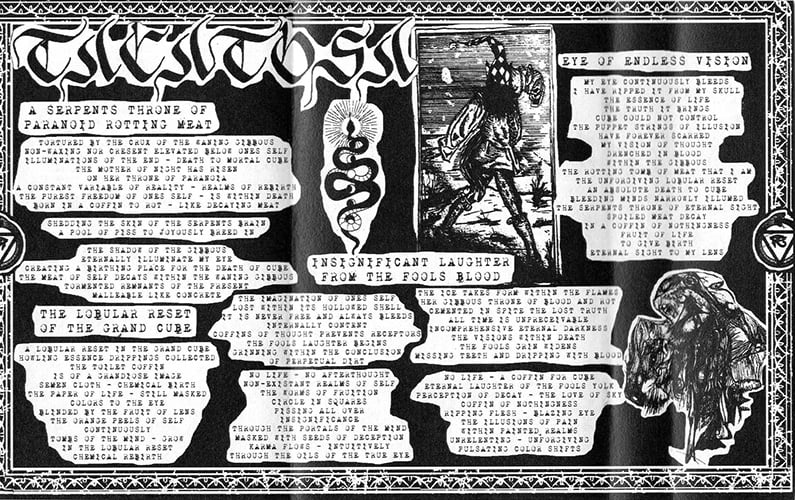 TACATOSA
A SERPENTS THRONE OF
PARANOID ROTTING MEAT
TORTURED BY THE CRUX OF THE WANING GIBBOUS
NON-WAXING NOR PRESENT ELEVATED BELOW ONES SELF
ILLUMINATIONS OF THE END - DEATH TO MORTAL CUBE
THE MOTHER OF NIGHT HAS RISEN
ON HER THRONE OF PARANOIA
A CONSTANT VARIABLE OF REALITY - REALMS OF REBIRTH
THE PUREST FREEDOM OF ONES SELF - IS WITHIN DEATH
BORN IN A COFFIN TO ROT - LIKE DECAYING MEAT
SHEDDING THE SKIN OF THE SERPENTS BRAIN
A POOL OF PISS TO JOYOUSLY BREED IN
THE SHADOW OF THE GIBBOUS
ETERNALLY ILLUMINATE MY EYE
CREATING A BIRTHING PLACE FOR THE DEATH OF CUBE
THE MEAT OF SELF DECAYS WITHIN THE WANING GIBBOUS
TORMENTED REMNANTS OF THE PRESENT
MALLEABLE LIKE CONCRETE
THE LOBULAR RESET
OF THE GRAND CUBE
A LOBULAR RESET IN THE GRAND CUBE
HOWLING ESSENCE DRIPPINGS COLLECTED
THE TOILET COFFIN
IS OF A GRANDIOSE IMAGE
SEMEN CLOTH - CHEMICAL BIRTH
THE PAPER OF LIFE - STILL MASKED
COLORS TO THE EYE
BLINDED BY THE FRUIT OF LENS
THE ORANGE PEELS OF SELF
CONTINUOUSLY
TOMBS OF THE MIND - GROW
IN THE LOBULAR RESET
CHEMICAL REBIRTH
INSIGNIFICANT LAUGHTER
FROM THE FOOLS BLOOD
THE IMAGINATION OF ONES SELF
LOST WITHIN ITS HOLLOWED SHELL
IT IS NEVER FREE AND ALWAYS BLEEDS
INTERNALLY CONTENT
COFFINS OF THOUGHT PREVENTS RECEPTORS
THE FOOLS LAUGHTER BEGINS
GRINNING WITHIN THE CONCLUSION
OF PERPETUAL DIRT
NO LIFE - NO AFTERTHOUGHT
NON-EXISTANT REALMS OF SELF
THE WORMS OF FRUITION
CIRCLE IN SQUARE
PISSING ALL OVER
INSIGNIFICANCE
THROUGH THE PORTALS OF THE MIND
MASKED WITH SEEDS OF DECEPTION
KARMA FLOWS - INTUITIVELY
THROUGH THE OILS OF THE TRUE EYE
THE ICE TAKES FORM WITHIN THE FLAMES
HER GIBBOUS THRONE OF BLOOD AND ROT
CEMENTED IN SPITE THE LOST TRUTH
ALL TIME IS UNPERCEIVABLE
INCOMPREHENSIVE ETERNAL DARKNESS
THE VISIONS WITHIN DEATH
THE FOOLS GRIN WIDENS
MISSING TEETH AND DRIPPING WITH BLOOD
NO LIFE - A COFFIN FOR CUBE
ETERNAL LAUGHTER OF THE FOOLS YOLK
PERCEPTION OF DECAY - THE LOVE OF SKY
COFFIN OF NOTHINGNESS
RIPPING FLESH - BLAZING EYE
THE ILLUSIONS OF PAIN
WITHIN PAINTED REALMS
UNRELENTING - UNFORGIVING
PULSATING COLOR SHIFTS
EYE OF ENDLESS VISION
MY EYE CONTINUOUSLY BLEEDS
I HAVE RIPPED IT FROM MY SKULL
THE ESSENCE OF LIFE
THE TRUTH IT BRINGS
CUBE COULD NOT CONTROL
THE PUPPET STRINGS OF ILLUSION
HAVE FOREVER SCARRED
MY VISION OF THOUGHT
DRENCHED IN BLOOD
WITHIN THE GIBBOUS
THE ROTTING TOMB OF MEAT THAT I AM
THE UNFORGIVING LOBULAR RESET
AN ABSOLUTE DEATH TO CUBE
BLEEDING MINDS NARROWLY ILLUMED
THE SERPENTS THRONE OF ETERNAL SIGHT
SPOILED MEAT DECAY
IN A COFFIN OF NOTHINGNESS
FRUIT OF LIFE
TO GIVE BIRTH
ETERNAL SIGHT TO MY LENS